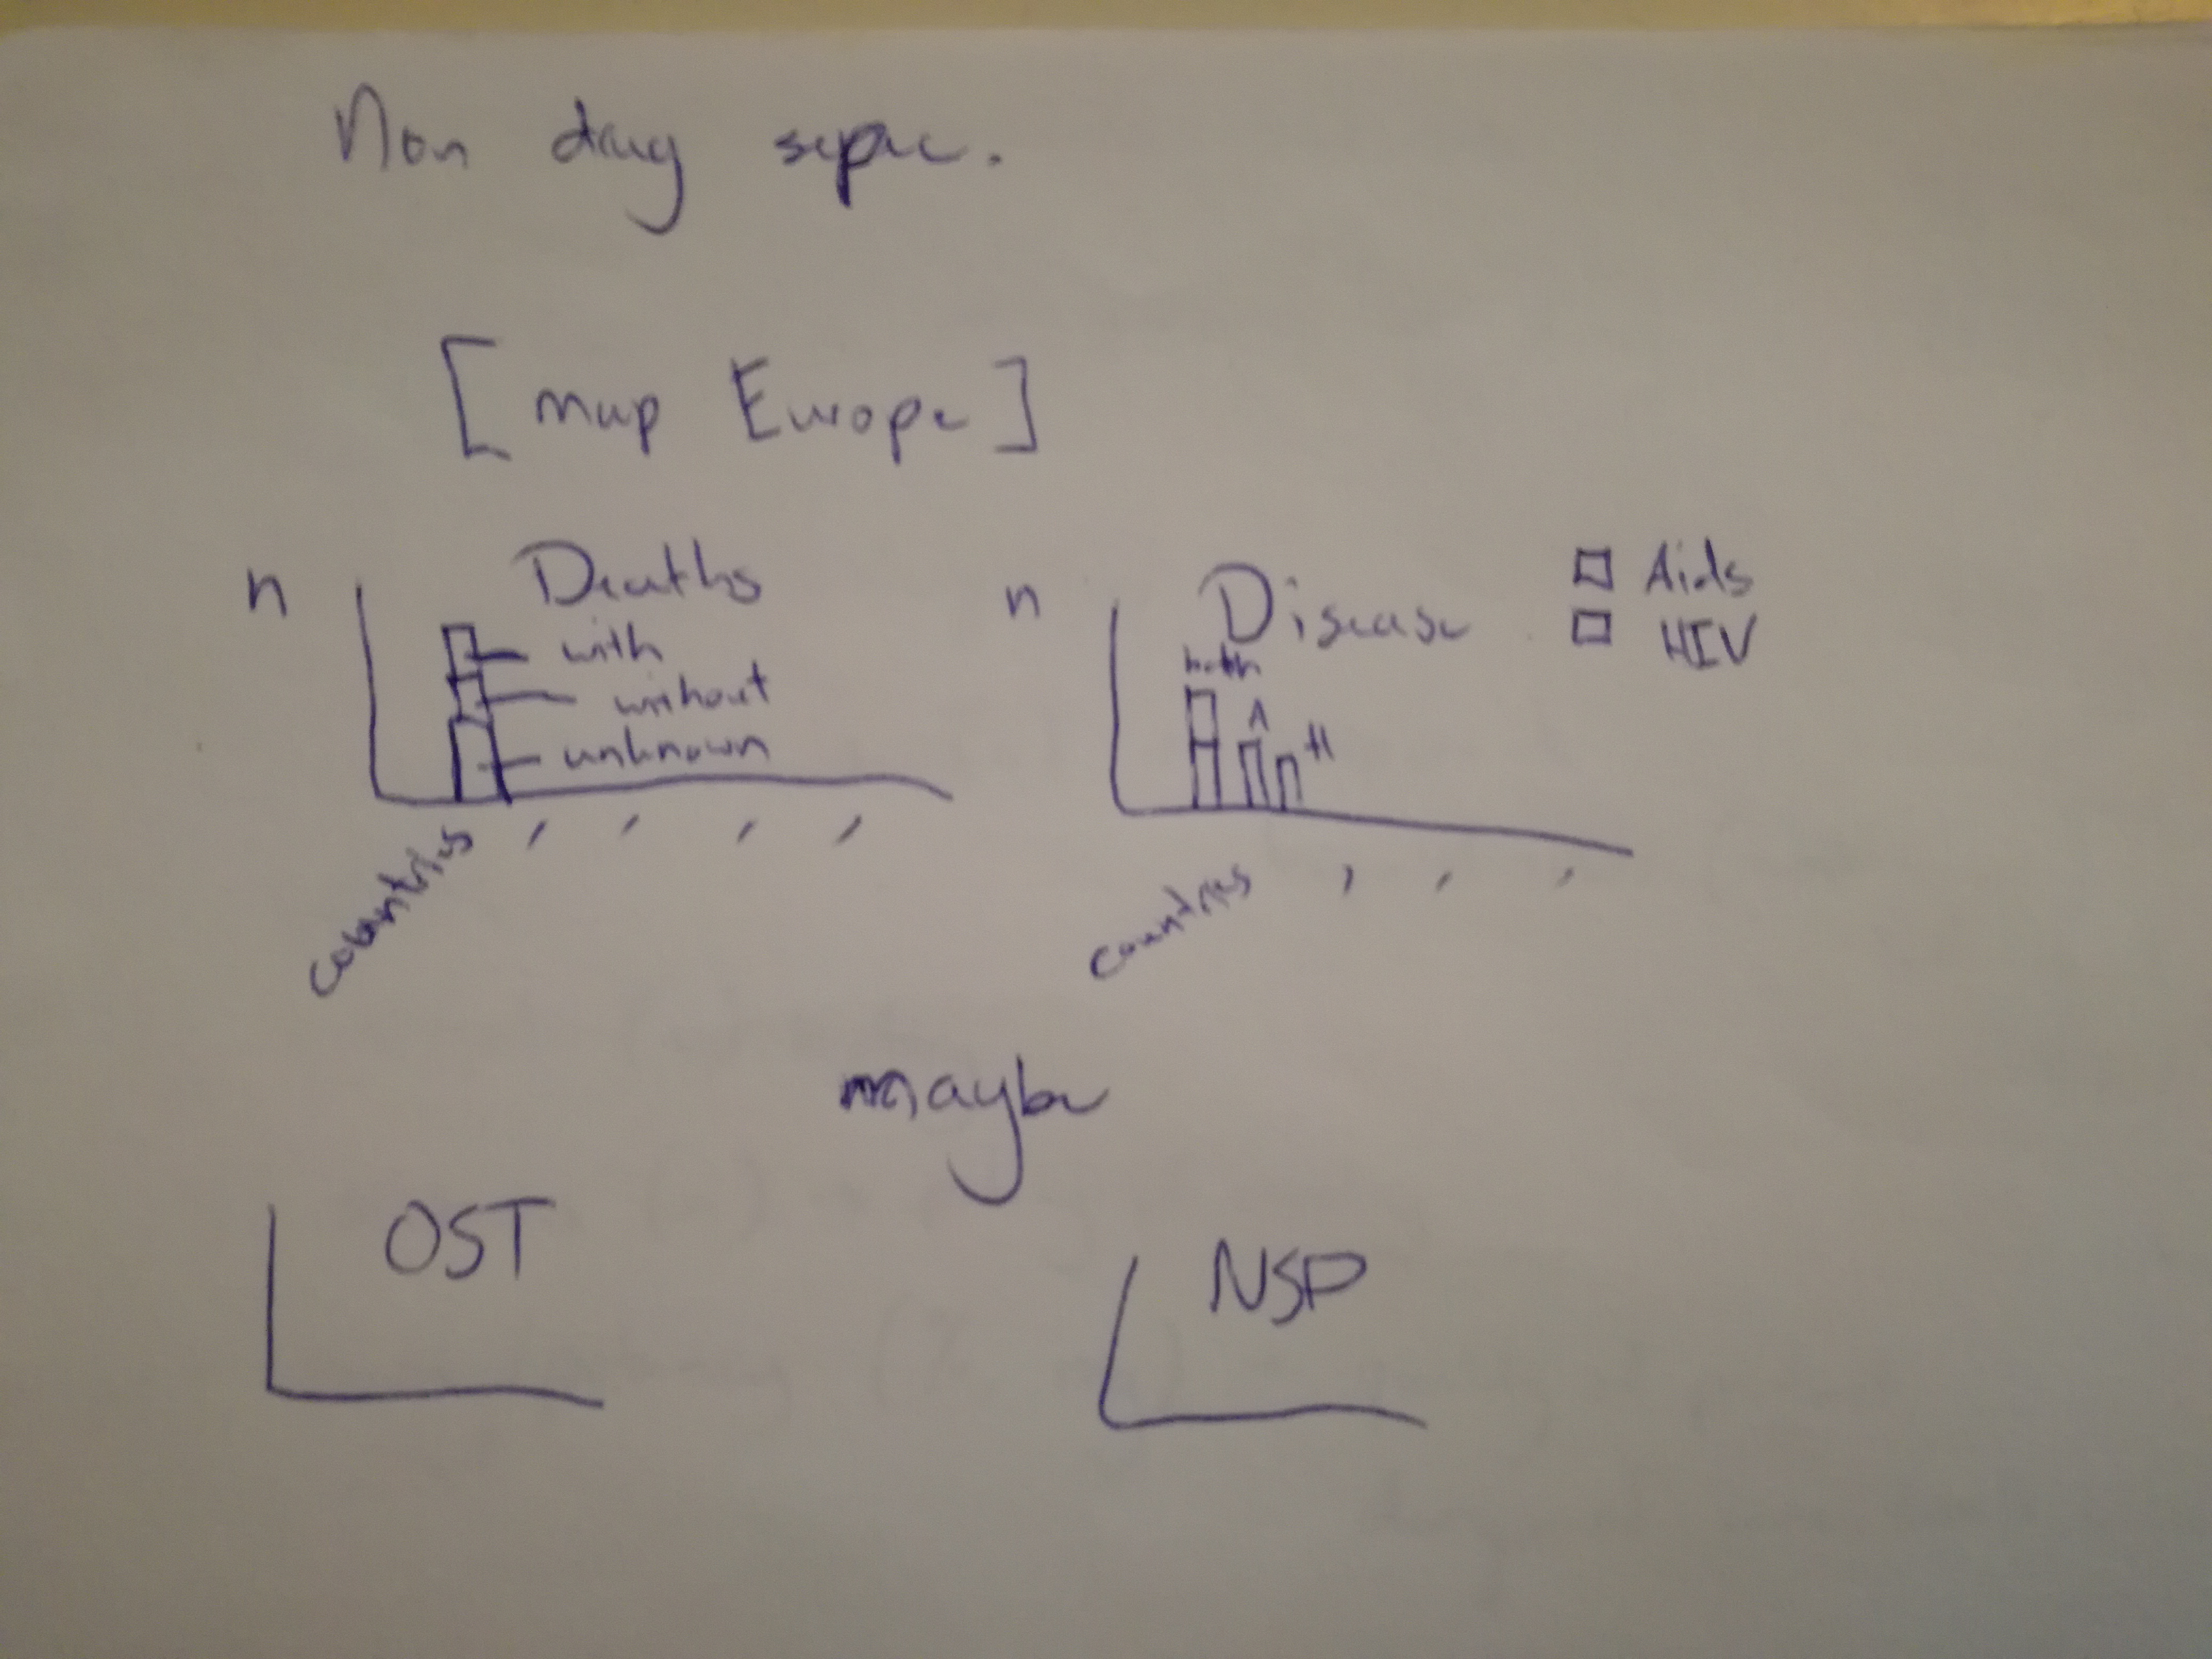 Non drug sepc.
[map Europe]
n
Deaths
with
without
unknown
countries
n
Disease
Aids
HIV
both
A
H
countries
maybe
OST
NSP